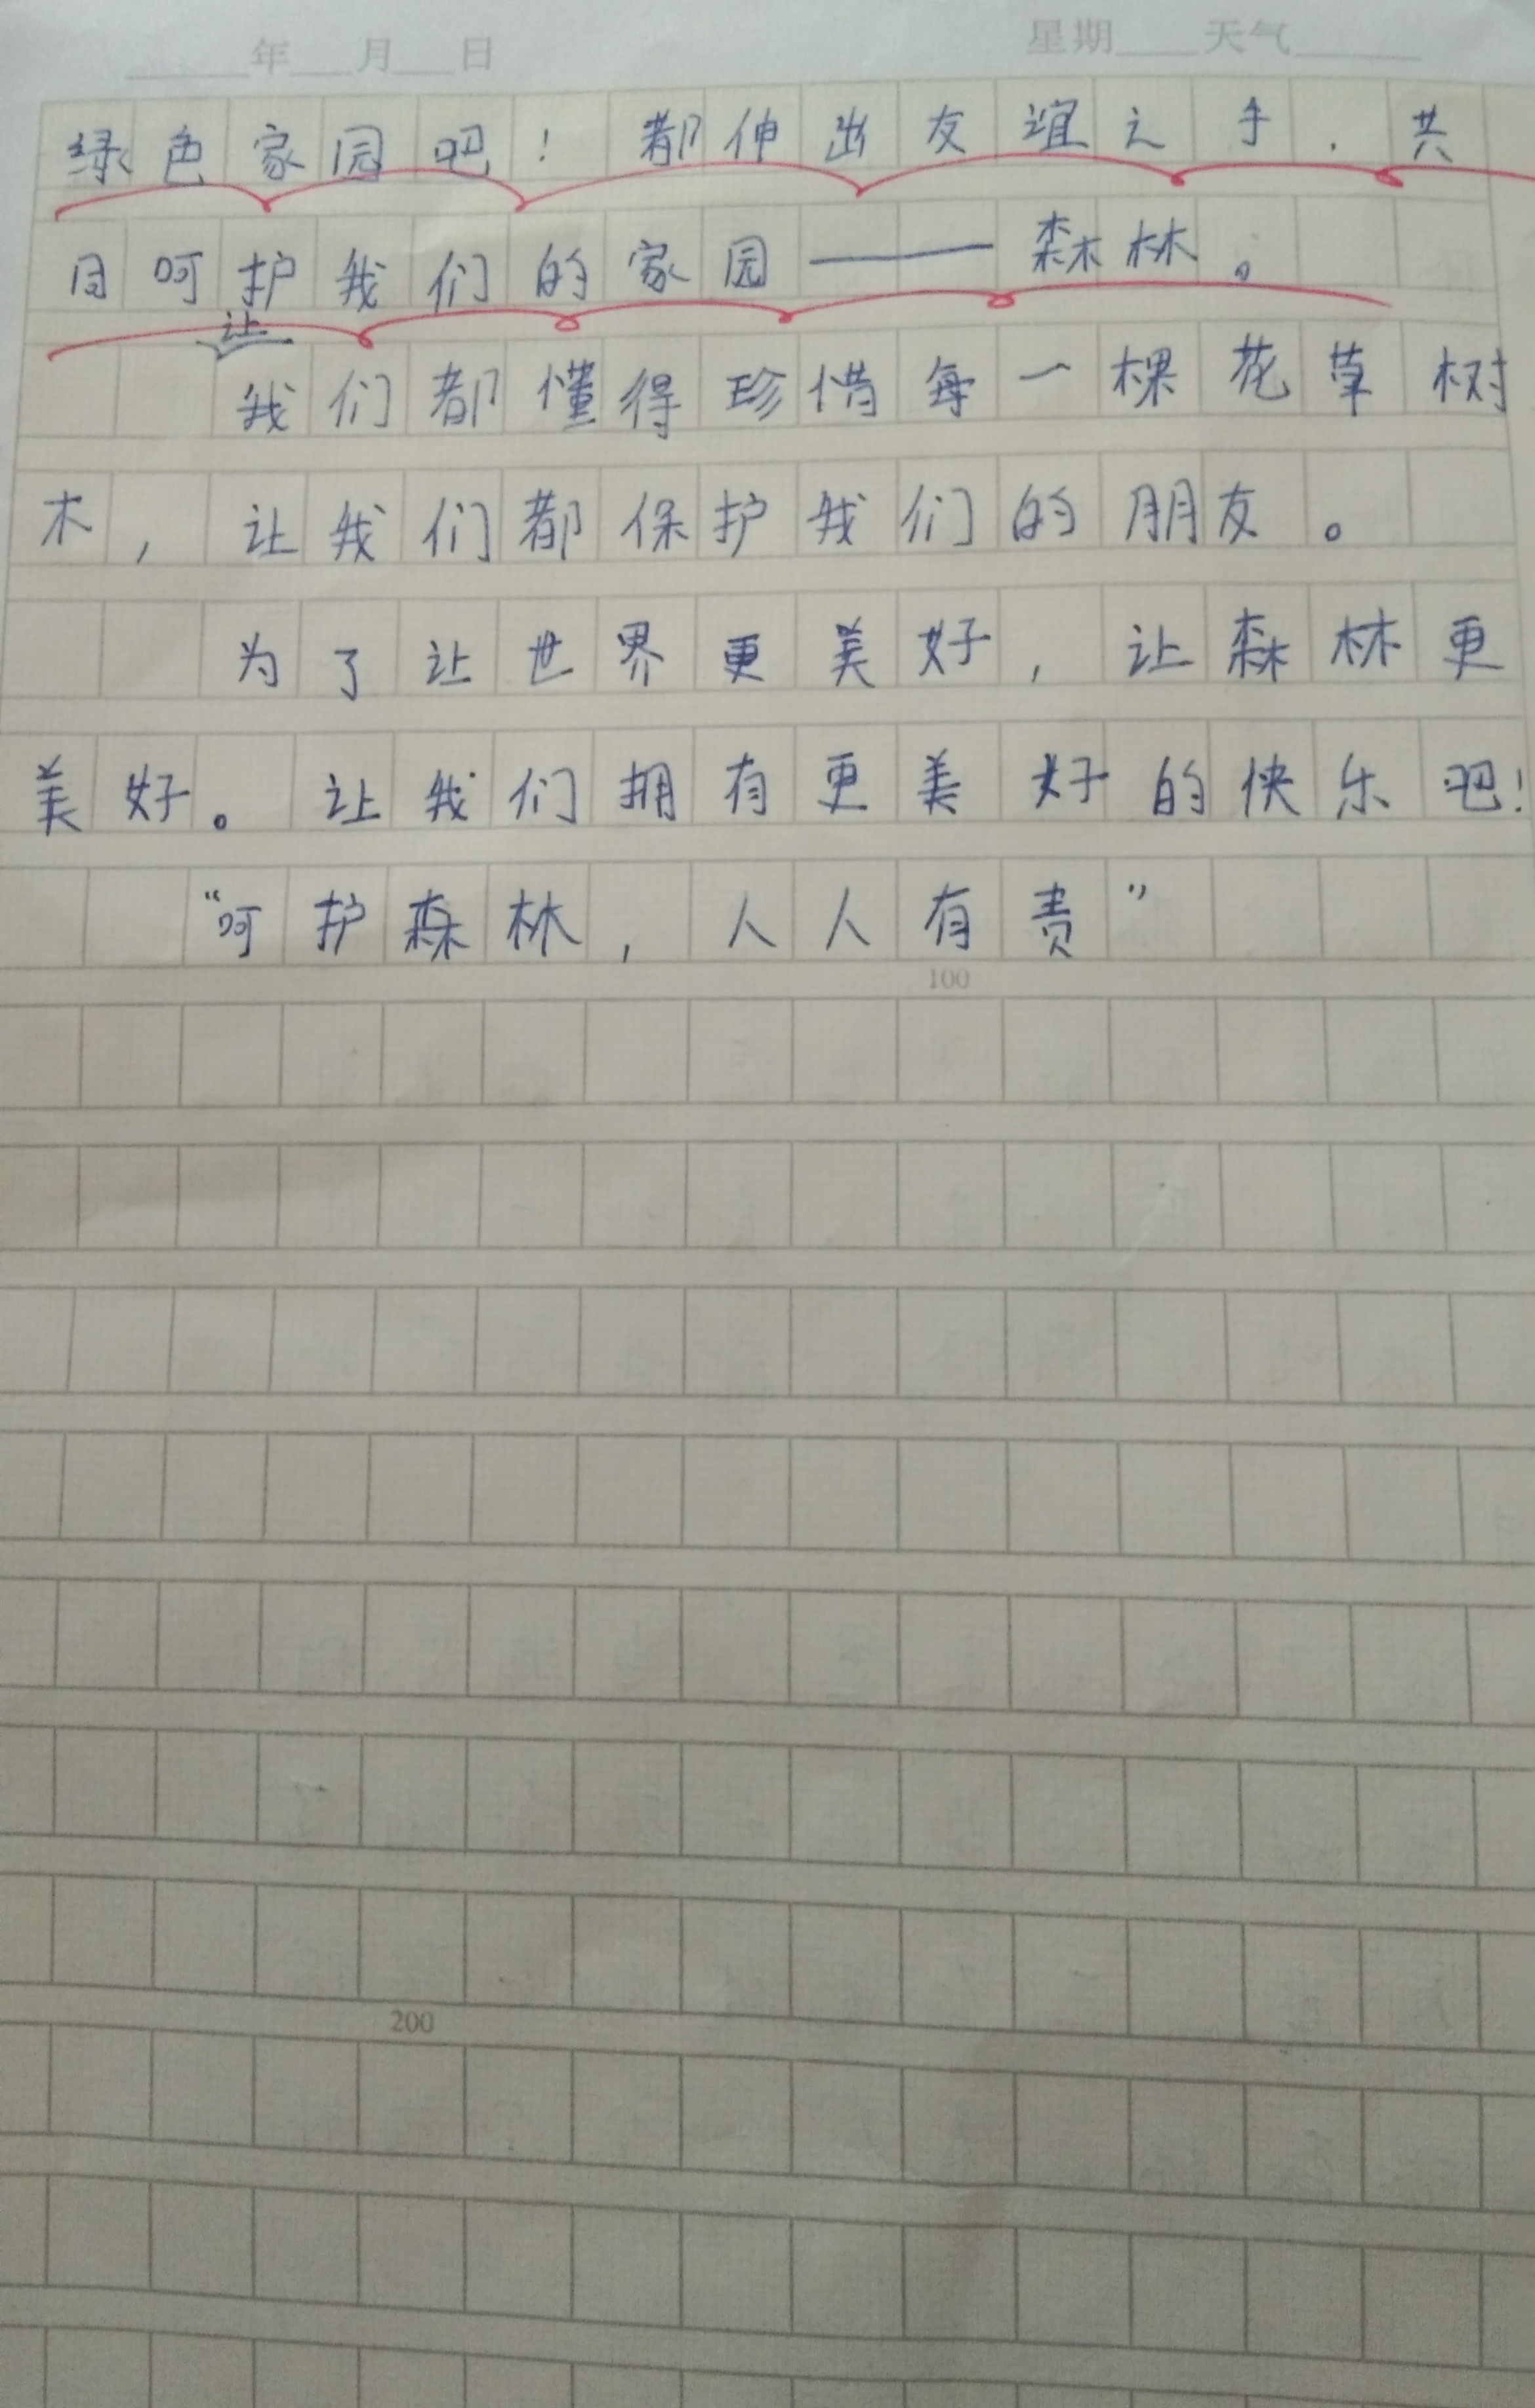 ____年__月__日 星期___天气____
绿色家园吧！都伸出友谊之手，共
同呵护我们的家园——森林。
让
我们都懂得珍惜每一棵花草树
木，让我们都保护我们的朋友。
为了让世界更美好，让森林更
美好。让我们拥有更美好的快乐吧！
“呵护森林，人人有责”
100
200